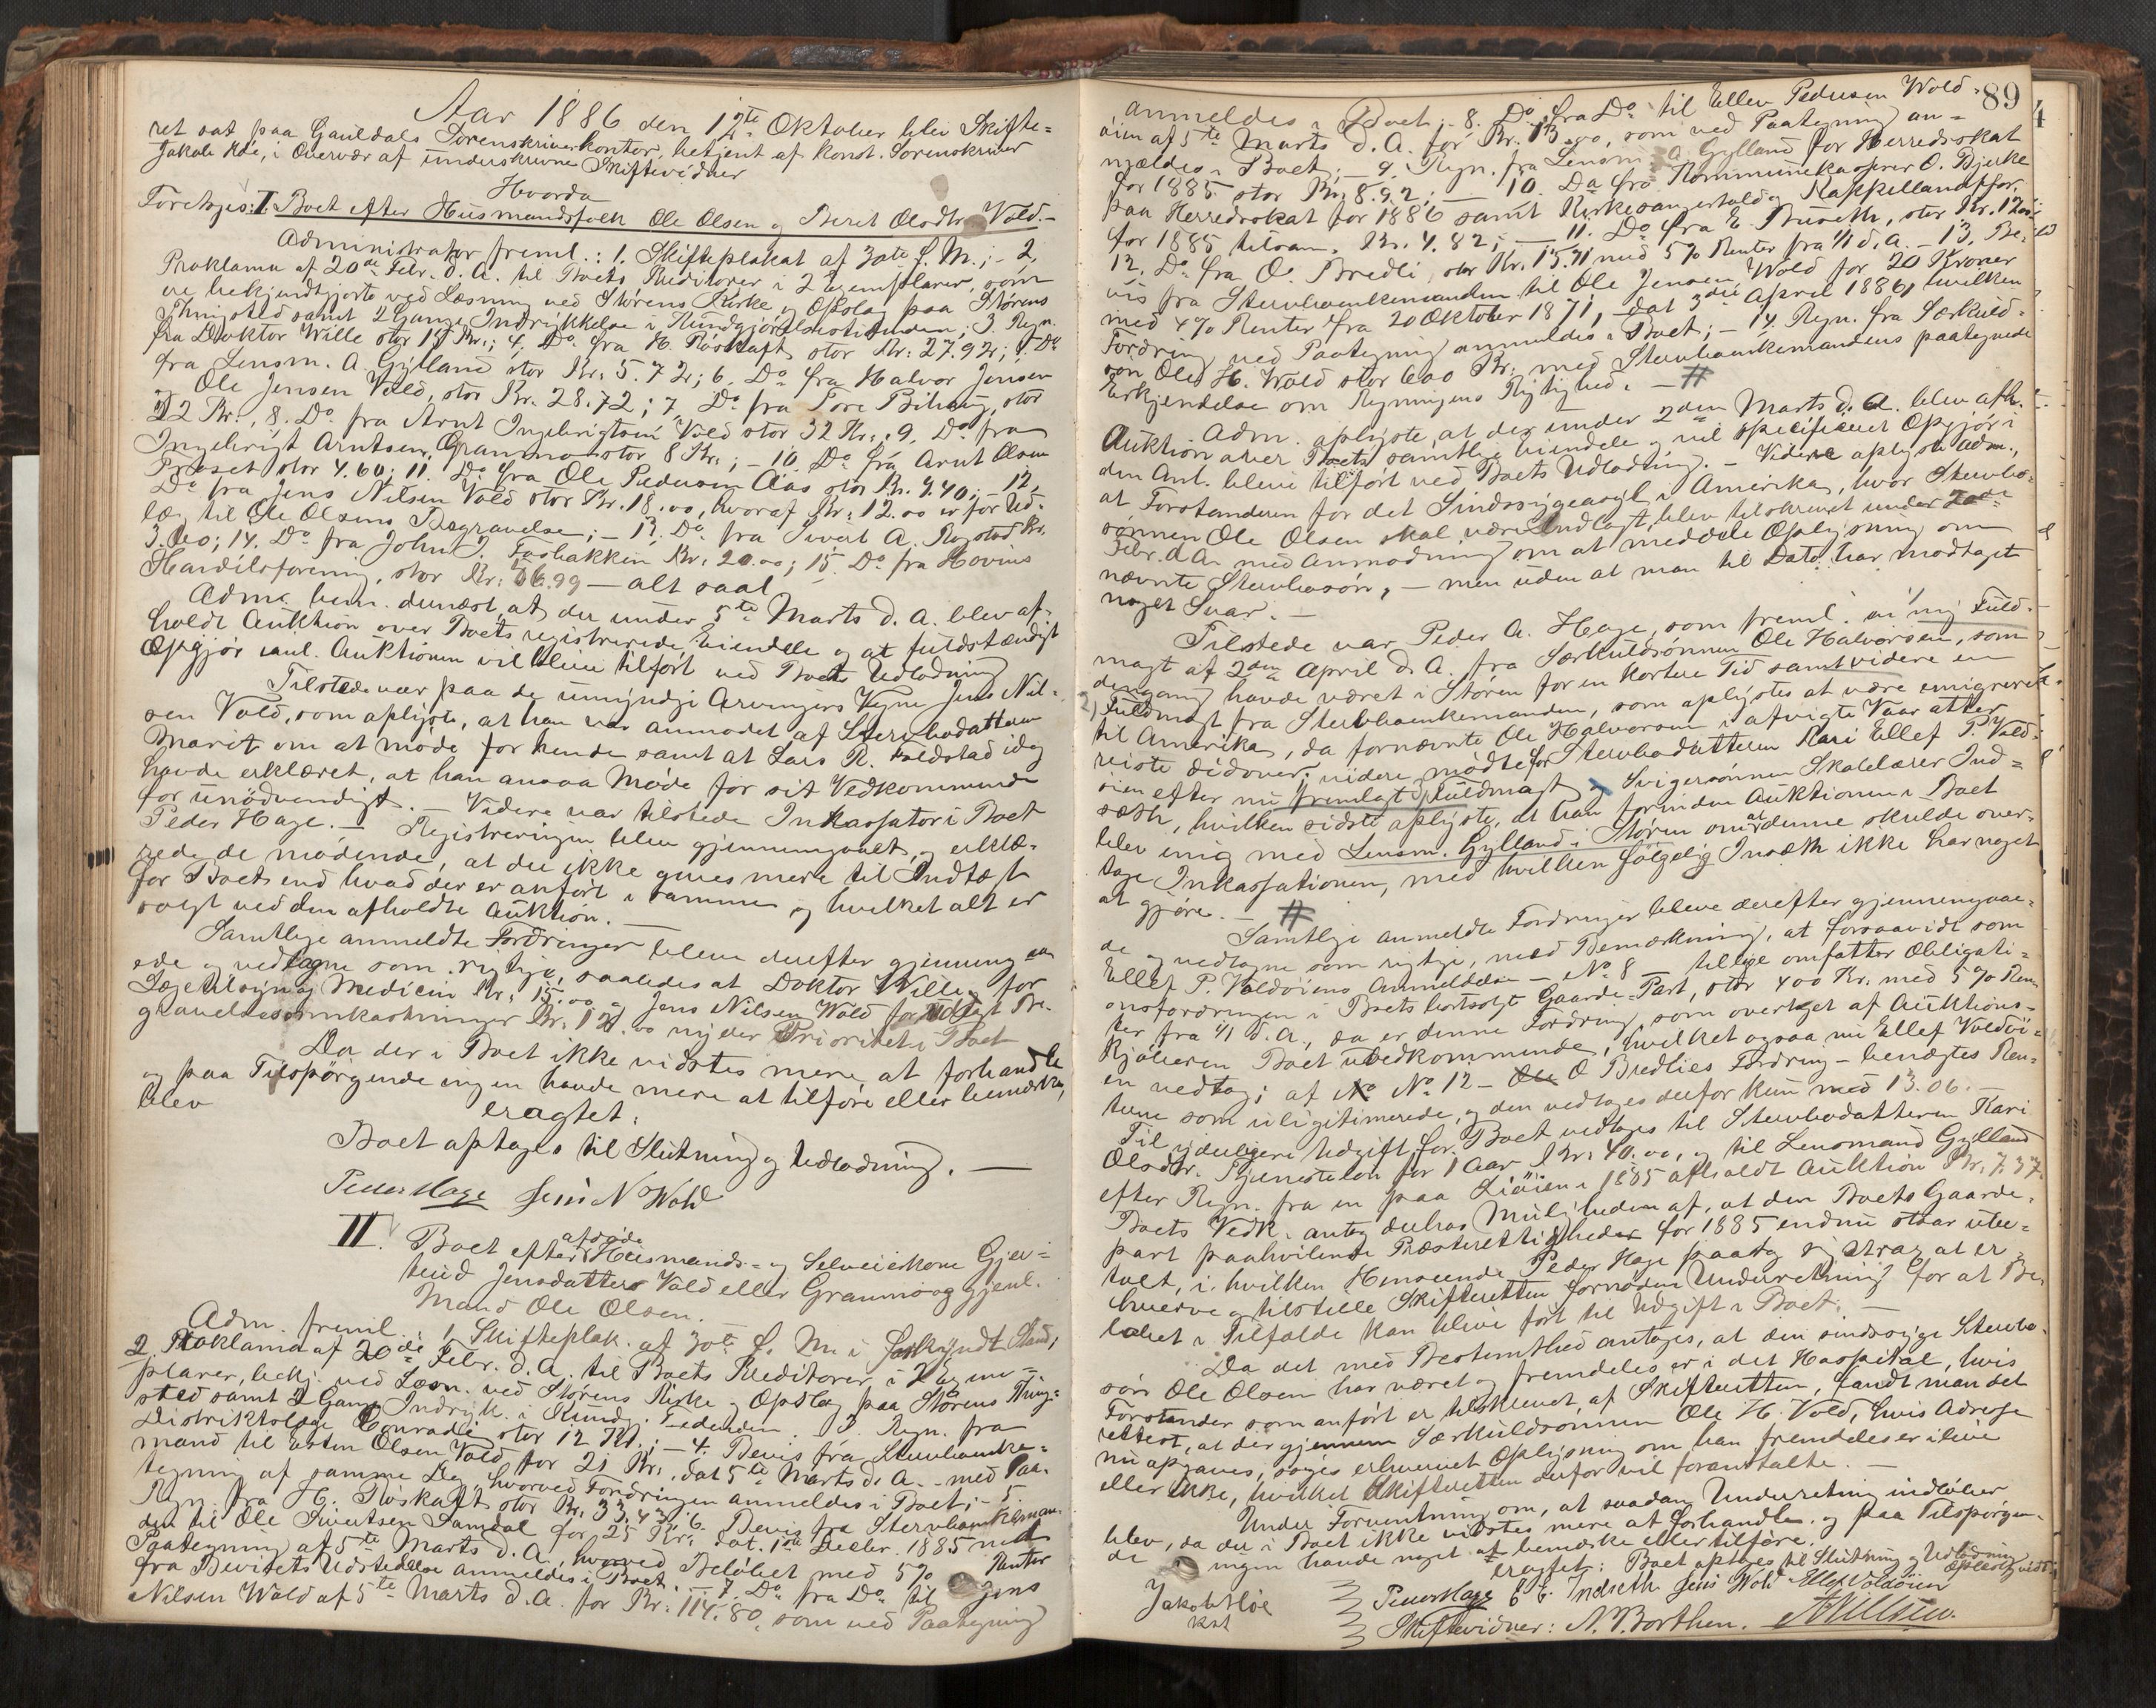 Aar 1886 den 12te Oktober blev Skifte=
ret sat paa Gauldals Sorenskriverkontor, betjent af konst. Sorenskriver
Jakob Høe, i Overvær af underskrevne Skiftevidner
Hvorda
Foretoges: I. Boet efter Husmandsfolk Ole Olsen og Beret Olsdtr. Vold.—
Administrator freml.: 1. Skifteplakat af 30te f. M.; - 2,
Proklama af 20de Febr. d. A. til Boets Kreditorer i 2 Exemplarer, som
ere bekjendtgjorte ved Læsning ved Størens Kirke og Opslag paa Størens
Thingsted samt 2 Gange Indrykkelse i Kundgjørelsestidenden; 3. Regn.
fra Doktor Wille stor 15 Kr.; 4. Do fra H. Røskaft stor Kr. 27.92; 5. Do
fra Lensm. A. Gylland stor Kr. 5.72; 6. Do fra Halvor Jensen
og Ole Jensen Vold, stor Kr. 28.72; 7. Do fra Tore Bihaug, stor
22 Kr., 8. Do fra Arnt Ingebrigtsen Vold stor 32 Kr.; 9. Do fra
Ingebrigt Arntsen Granmo stor 8 Kr.; - 10. Do fra Arnt Olsen
Præset stor 4.60; 11. Do fra Ole Pedersen Aas stor Kr. 4.40; - 12,
Do fra Jens Nilsen Vold stor Kr. 18.00, hvoraf Kr. 12.00 er for Ud=
læg til Ole Olsens Begravelse; - 13. Do fra Sivert A. Rogstad Kr.
3.00; 14. Do fra John J. Fosbakken Kr. 20.00; 15. Do fra Hovins
Handelsforening, stor Kr. 56.99 — alt saal.
Adm. bem. dernæst, at der under 5te Marts d. A. blev af=
holdt Auktion over Boets registrerede Eiendele og at fuldstændigt
Opgjør iaml. Auktionen vil blive tilført ved Boets Udlodning
Tilstede var paa de umyndige Arvingers Vegne Jens Nil=
sen Vold, som oplyste, at han var anmodet af Stervbodatteren
Marit om at møde for hende samt at Lars R. Foldstad idag
havde erklæret, at han ansaa Møde for sit Vedkommende
for unødvendigt. — Videre var tilstede Inkassator i Boet
Peder Hage. — Registreringen blev gjennemgaaet, og erklæ=
rede de mødende, at der ikke gives mere til Indtægt
for Boet end hvad der er anført i samme og hvilket alt er
solgt ved den afholdte Auktion. —
Samtlige anmeldte Fordringer bleve derefter gjennemgaa
ede og vedtagne som rigtige, saaledes at Doktor Wille for
Lægetilsyn og Medicin Kr. 15.00 og Jens Nilsen Vold for Udlagt Be=
gravelsesomkostninger Kr. 12.00 nyder Prioritet i Boet
Da der i Boet ikke vidstes mere at forhandle
og paa Tilspørgende ingen havde mere at tilføre eller bemærke,
blev
eragtet:
Boet optages til Slutning og Udlodning. —
Peder Hage Jens N Wold
II. Boet efter afdøde Husmands- og Selveierkone Gjer=
trud Jensdatter Vold eller Granmo og gjenl.
Mand Ole Olsen.
Adm. freml.: 1 Skifteplak. af 30te f. M. i forkyndt Stand,
2 Proklama af 20de Febr. d. A. til Boets Kreditorer i 2 Exem=
plarer, bekj. ved Læsn. ved Størens Kirke og Opslag paa Størens Thing=
sted samt 2 Gange Indryk. i Kundg. Tidenden. 3. Regn. fra
Distriktslæge Conradi stor 12 Kr.; - 4. Bevis fra Stervboenke=
mand til Esten Olsen Vold for 21 Kr. dat 5te Marts d. A. - med Paa=
tegning af samme Dag hvorved Fordringen anmeldes i Boet; - 5
Regn. fra H. Røskaft stor Kr. 33.43; 6. Bevis fra Stervboenkeman=
den til Ole Sivertsen Samdal for 25 Kr. dat. 1ste Decbr. 1885 med
Paategning af 5te Marts d. A., hvorved Beløbet med 5% Renter
fra Bevisets Udstedelse anmeldes i Boet. - 7. Do fra Do til Jens
Nilsen Wold af 5te Marts d. A. for Kr. 114.80, som ved Paategning
89
anmeldes i Boet; - 8. Do fra Do til Ellev Pedersen Wold=
øien af 5te Marts d. A. for Kr. 13.00, som ved Paategning an=
meldes i Boet; - 9. Regn. fra Lensm. A Gylland for Herredsskat
for 1885 stor Kr. 8.92; - 10. Do fra Kommunekasserer O. Bjerke
paa Herredsskat for 1886 samt Kirkesangertold og Kappellandsfor.
for 1885 tilsam. Kr. 4.82; - 11. Do fra E. Indseth, stor Kr. 12.
12. Do fra O. Bredli, stor Kr. 15.71 med 5% Renter fra 1/1 d. A. - 13, Be=
vis fra Stervboenkemanden til Ole Jensen Wold for 20 Kroner
med 4% Renter fra 20 Oktober 1871, - dat 3die April 1886, hvilken
Fordring ved Paategning anmeldes i Boet; - 14. Regn. fra Særkuld=
søn Ole H. Wold stor 600 Kr. med Stervboenkemandens paategnede
Erkjendelse om Regningens Rigtighed. — #
Adm. oplyste, at der under 2den Marts d. A. blev afh.
Auktion over Boets samtlige Eiendele og vil specificeret Opgjør i
den Anl. blive tilført ved Boets Udlodning. — Videre oplyste Adm.,
at Forstanderen for det Sindssygeasyl i Amerika, hvor Stervbo=
sønnen Ole Olsen skal være indlagt, blev tilskrevet under 20de
Febr. d. A. med Anmodning om at meddele Oplysning om
nævnte Stervbosøn, - men uden at man til Dato har modtaget
noget Svar. —
Tilstede var Peder A. Hage, som freml. en ny Fuld=
magt af 2den April d. A. fra Særkuldsønnen Ole Halvorsen, som
dengang havde været i Støren for en kortere Tid samt videre en
2) Fuldmagt fra Stervboenkemanden, som oplystes at være emigreret
til Amerika, da fornævnte Ole Halvorsen i afvigte Vaar atter
reiste didover; videre mødte for Stervbodatteren Kari Ellef P. Vold=
øien efter nu fremlagt Fuldmagt og Svigersønnen Skolelærer Ind=
seth, hvilken sidste oplyste, at han forinden Auktionen i Boet
blev enig med Lensm. Gylland i Støren om at denne skulde over=
tage Inkassationen, med hvilken følgelig Inseth ikke har noget
at gjøre. — #
Samtlige anmeldte Fordringer bleve derefter gjennemgaae=
de og vedtagne som rigtige, med Bemærkning, at forsaavidt som
Ellef P. Voldøiens Anmeldelse - No 8 - tillige omfatter Obligati=
onsfordringen i Boets bortsolgte Gaarde-Part, stor 400 Kr. med 5% Ren
ter fra 1/1 d. A., da er denne Fordring, som overtaget af Auktions=
kjøberen Boet uvedkommende, hvilket ogsaa nu Ellef Voldøi=
en vedtog; af No No 12 - Ole O Bredlies Fordring - benægtes Ren=
terne som uligitimerede, og den vedtages derfor kun med 13.06. —
Til yderligere Udgift for Boet vedtages til Stervbodatteren Kari
Olsdtr. Tjenesteløn for 1 Aar Kr. 40.00, og til Lensmand Gylland
efter Regn. fra en paa Liøien i 1885 afholdt Auktion Kr. 7.37.
Boets Vedk. antog derhos Muligheden af, at den Boets Gaarde=
part paahvilende Præsterettigheder for 1885 endnu staar ube=
talt, i hvilken Henseende Peder Hage paatog sig strax at er=
hverve og tilstille Skifteretten fornøden Underretning for at Be=
løbet i Tilfælde kan blive ført til Udgift i Boet. —
Da det med Bestemthed antages, at den sindssyge Stervbo=
søn Ole Olsen har været og fremdeles er i det Hospital, hvis
Forstander som anført er tilskrevet, af Skifteretten, fandt man det
rettest, at der gjennem Særkuldsønnen Ole H. Vold, hvis Adresse
nu opgaves, søges erhvervet Oplysning om han fremdeles er ilive
eller ikke, hvilket Skifteretten derfor vil foranstalte. —
Under Forventning om, at saadan Underretning indløber
blev, da der i Boet ikke vidstes mere at forhandle og paa Tilspørgen=
de ingen havde noget at bemærke eller tilføre
eragtet: Boet optages til Slutning og Udlodning
Oplæst vedt.
Jakob Høe Peder Hage E E. Indseth Jens Wold Ellef Voldøien
kst
Skiftevidner: N. P. Borthen.